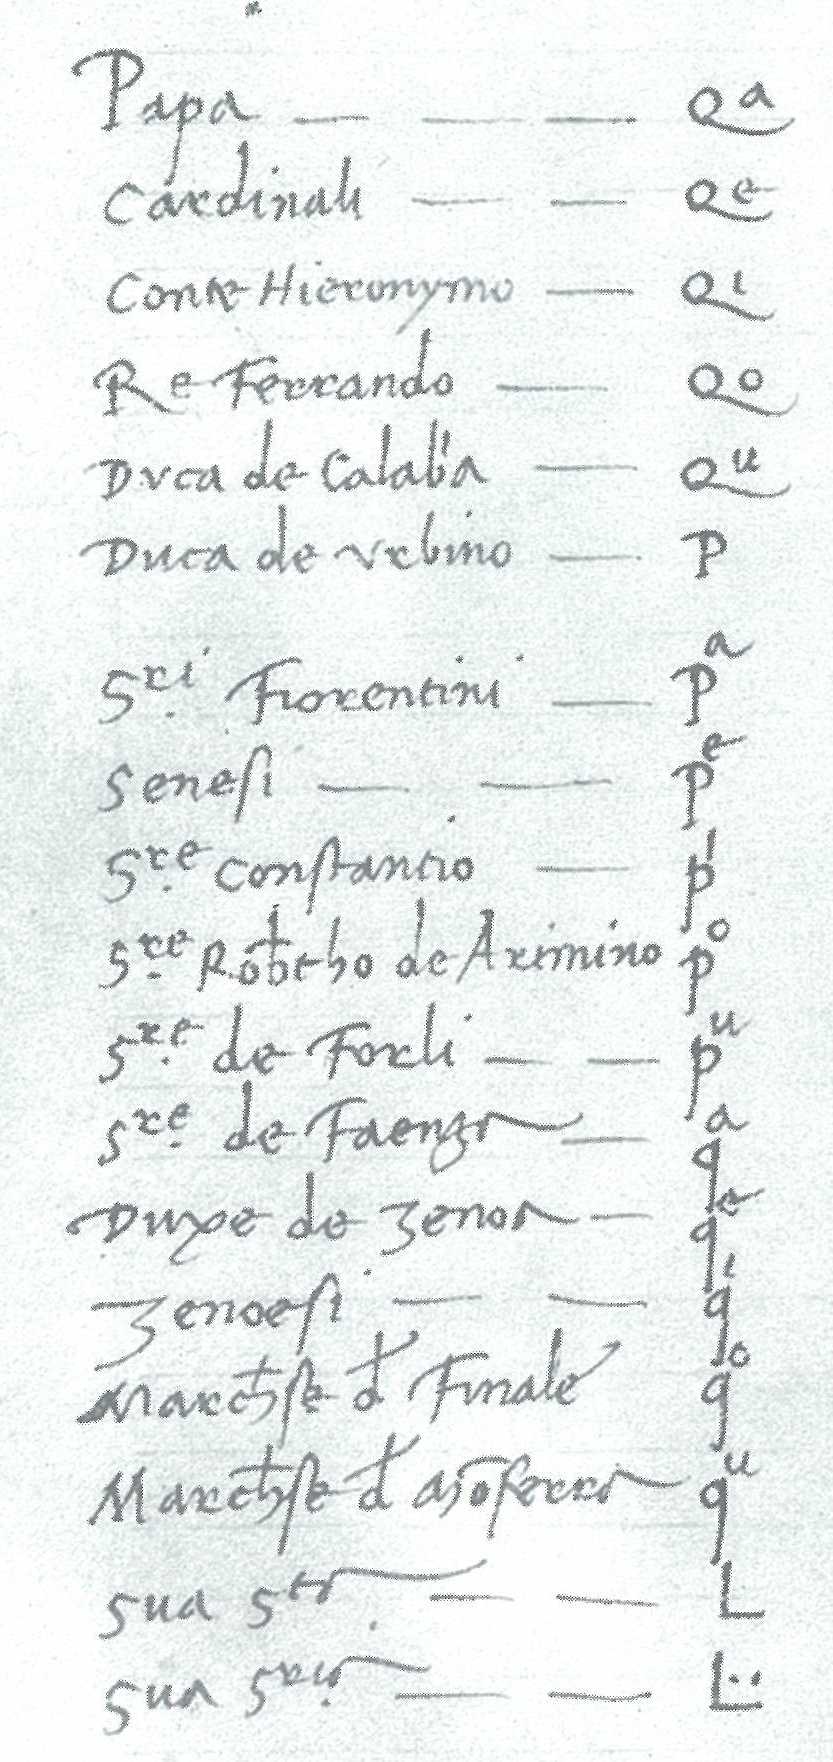 Papa — — — Qa
Cardinali — — Qe
Conte Hieronymo — Qi
Re Ferrando — Qo
Dvca de Calab'a — Qu
Duca de vrbino — P
Sri Fiorentini — Pa
Senesi — — Pe
Sre Constantio — pi
Sre Robtho de Arimino po
Sre de Forli — — pu
Sre de Faenza — qa
Duxe de Zenoa — qe
Zenoesi — — qi
Marchse d Finale qo
Marchse d Moferra qu
Sua Sta — — L
Sua Sria — — L··